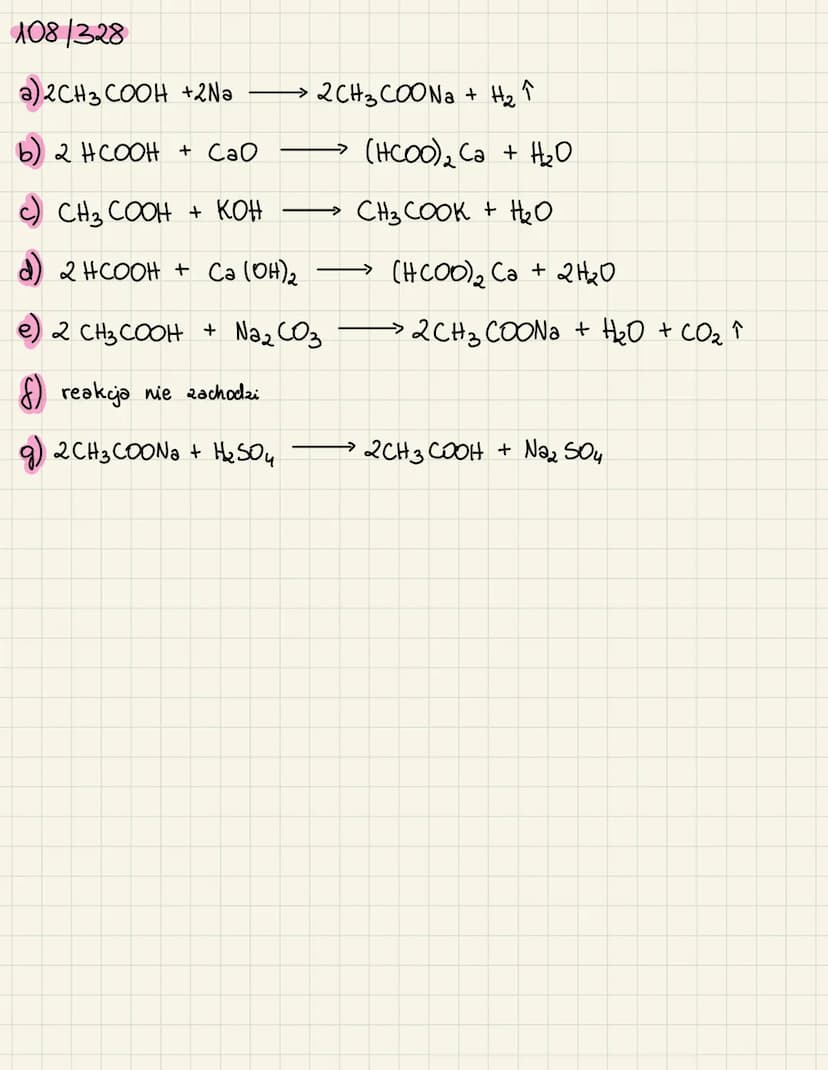 108/328
a) 2CH₃COOH + 2Na ⟶ 2CH₃COONa + H₂↑
b) 2 HCOOH + CaO ⟶ (HCOO)₂Ca + H₂O
c) CH₃COOH + KOH ⟶ CH₃COOK + H₂O
d) 2 HCOOH + Ca(OH)₂ ⟶ (HCOO)₂Ca + 2H₂O
e) 2 CH₃COOH + Na₂CO₃ ⟶ 2CH₃COONa + H₂O + CO₂↑
f) reakcja nie zachodzi
g) 2CH₃COONa + H₂SO₄ ⟶ 2CH₃COOH + Na₂SO₄